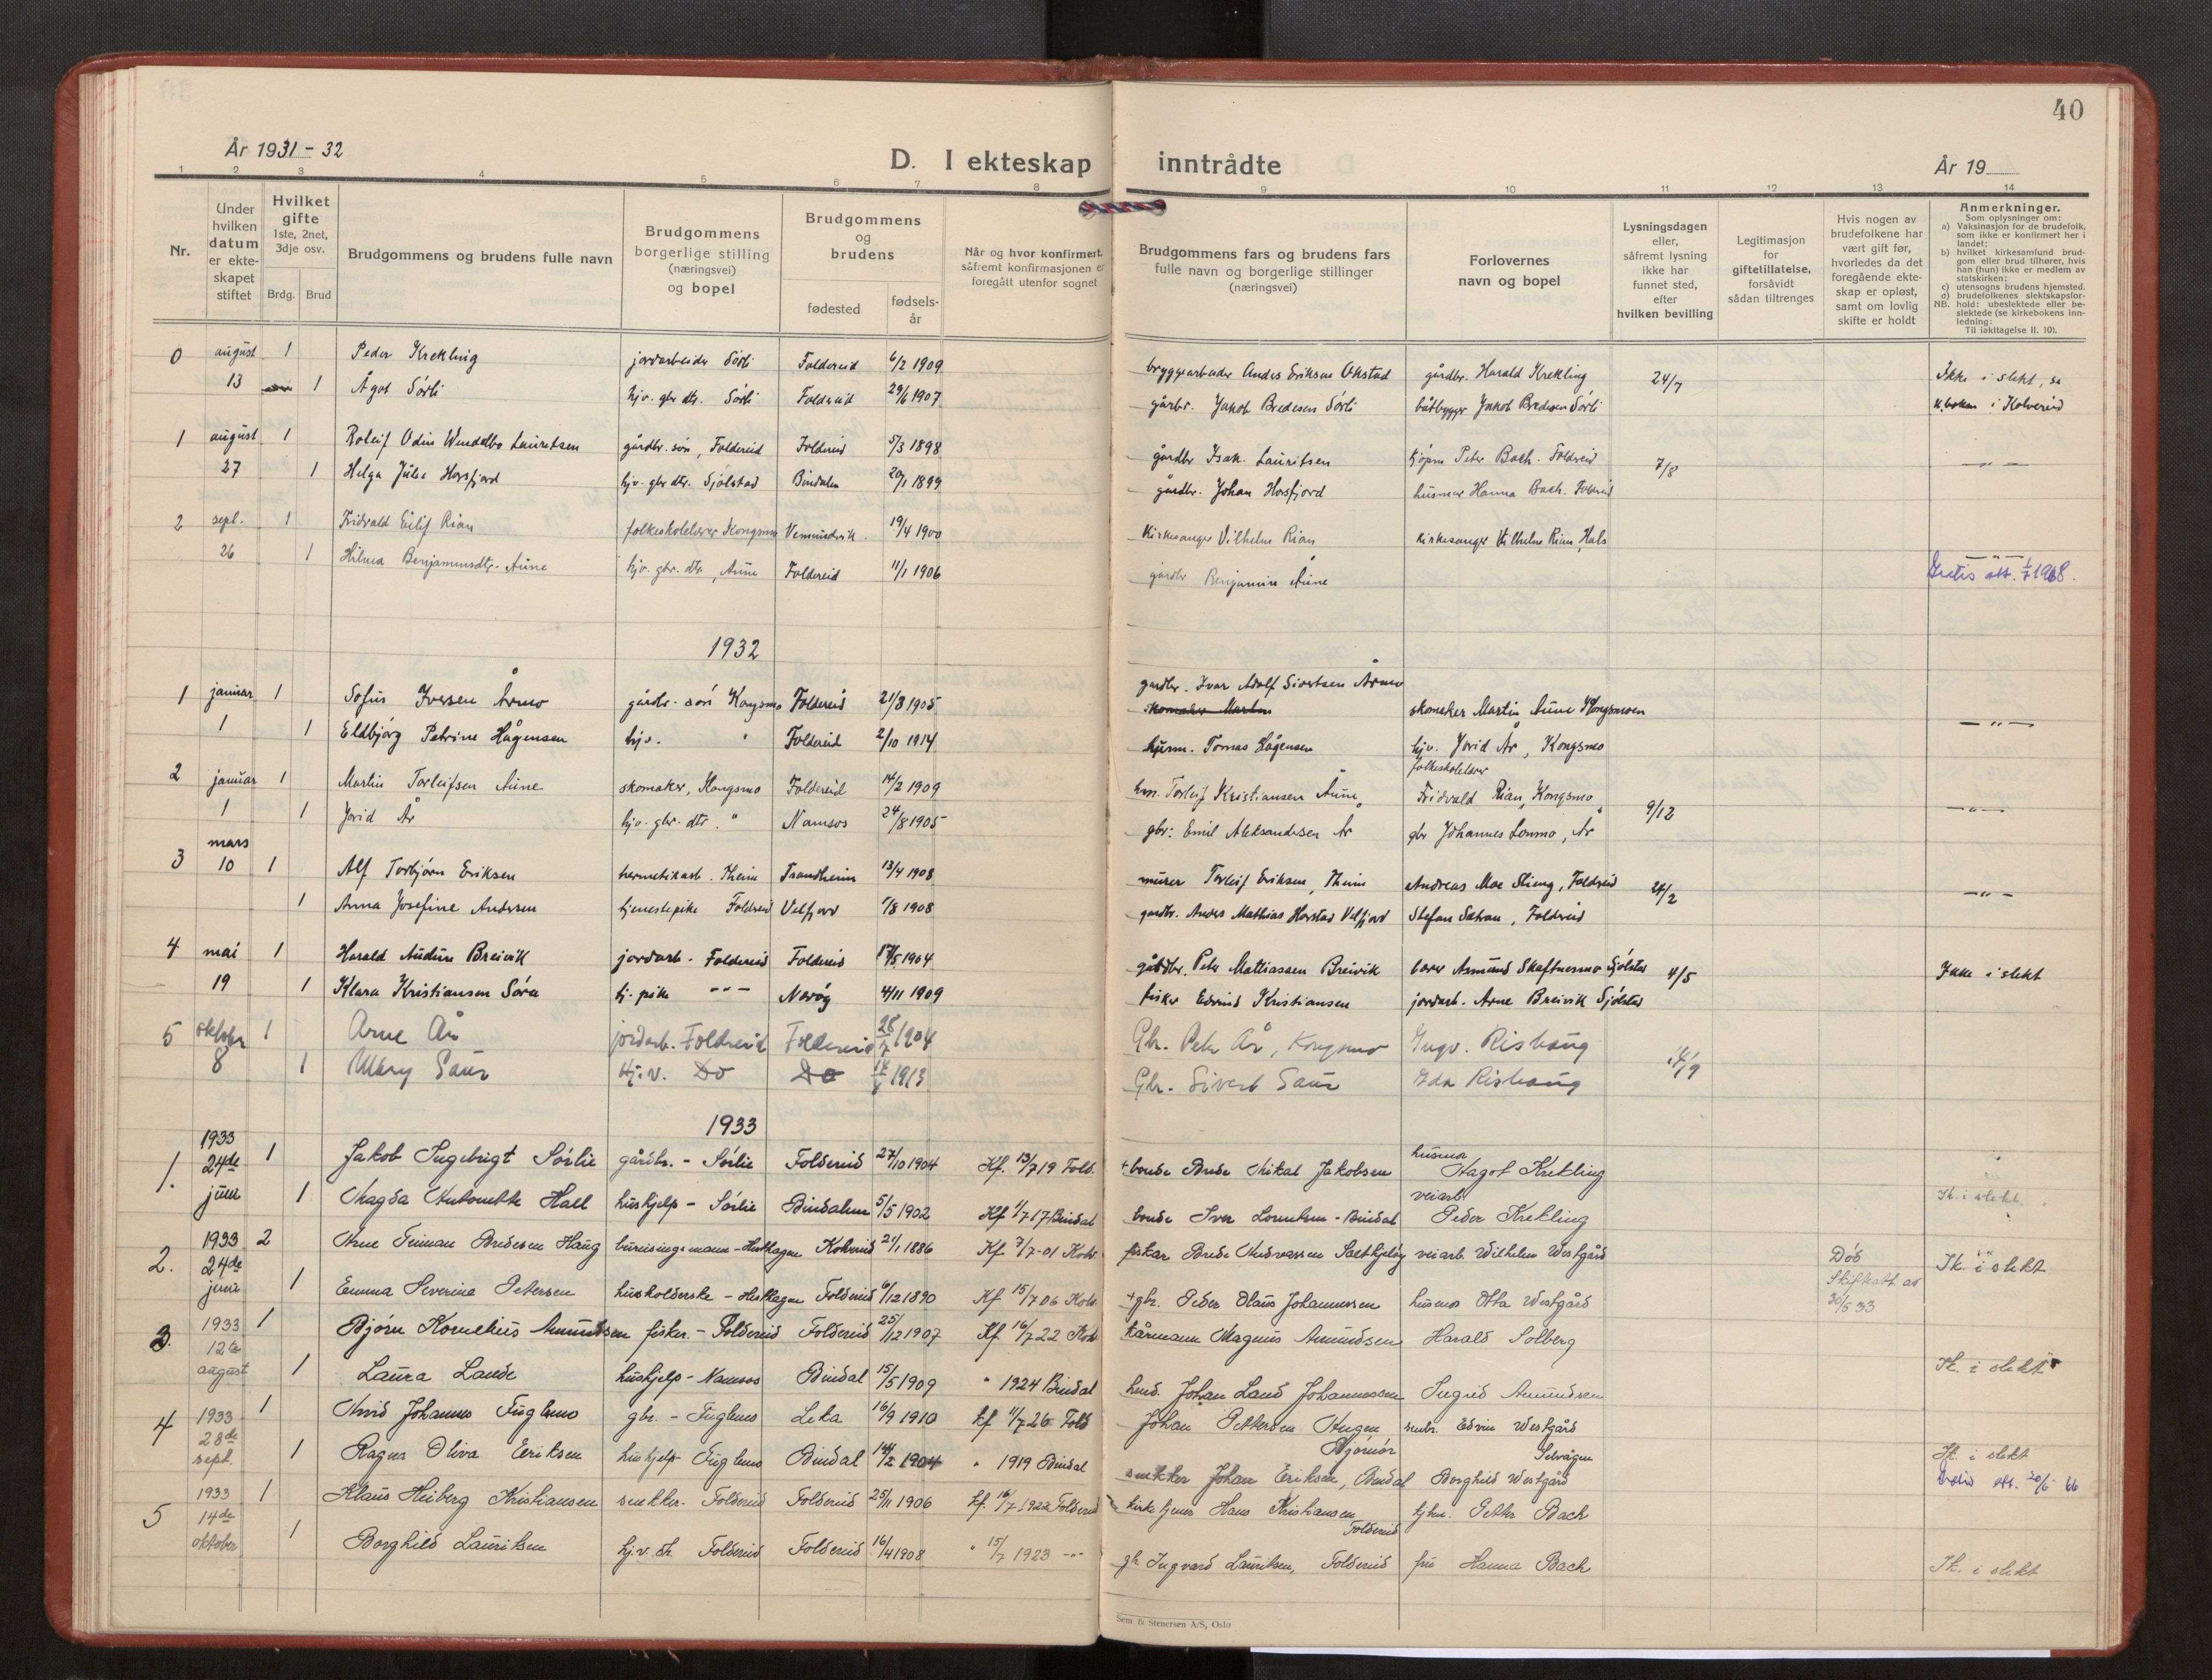 40
År 1931 - 32
D. I ekteskap inntrådte
År 19
1 2 3 4 5 6 7 8 9 10 11 12 13 14
Nr.
Under hvilken datum er ekteskapet stiftet
Hvilket gifte 1ste, 2net, 3dje osv.
Brdg. Brud
Brudgommens og brudens fulle navn
Brudgommens borgerlige stilling (næringsvei) og bopel
Brudgommens og brudens
fødested
fødselsår
Når og hvor konfirmert, såfremt konfirmasjonen er foregått utenfor sognet
Brudgommens fars og brudens fars fulle navn og borgerlige stillinger (næringsvei)
Forlovernes navn og bopel
Lysningsdagen eller, såfremt lysning ikke har funnet sted, efter hvilken bevilling
Legitimasjon for giftetillatelse, forsåvidt sådan tiltrenges
Hvis nogen av brudefolkene har vært gift før, hvorledes da det foregående ekteskap er opløst, samt om lovlig skifte er holdt
Anmerkninger.
Som oplysninger om:
a) Vaksinasjon for de brudefolk, som ikke er konfirmert her i landet;
b) hvilket kirkesamfund brudgom eller brud tilhører, hvis han (hun) ikke er medlem av statskirken;
c) utensogns brudens hjemsted.
d) brudefolkenes slektskapsforhold: ubeslektede eller beslektede (se kirkebokens innledning:
NB.
Til iakttagelse II. 10).
0 august 1 Peder Krekling jordarbeider Sørli Foldereid 6/2 1909 bryggearbeider Anders Eriksen Okstad gårdbr. Harald Krekling 24/7 Ikke i slekt, se
13 1 Ågot Sørli hjv. gbr dtr. Sørli Foldereid 29/6 1907 gårbr. Jakob Bredesen Sørli båtbygger Jakob Bredesen Sørli k.boken i Kolvereid
1 august 1 Roleif Odin Wendelbo Lauritsen gårdbr. søn, Foldereid Foldereid 5/3 1898 gårdbr Isak. Lauritsen kjøpm Peter Bach. Foldreid 7/8 — " —
27 1 Helga Julie Horsfjord hjv. gbr dtr. Sjølstad Bindalen 20/1 1899 gårdbr. Johan Horsfjord husmor Hanna Bach. Foldreid
2 sept. 1 Fridvald Eilif Rian folkeskolelærer Kongsmo Vemundvik 19/4 1900 Kirkesanger Vilhelm Rian Kirkesanger Vilhelm Rian, Hals — " —
26 1 Hilma Benjaminsdtr. Aune hjv. gbr. dtr, Aune Foldereid 11/1 1906 gårdbr Benjamin Aune Gratis att. 1/7 1968.
1932
1 januar 1 Sofus Iversen Årmo gårdbr. søn Kongsmo Foldereid 21/8 1905 gardbr. Ivar Adolf Sivertsen Årmo
skomaker Martin skomaker Martin Aune Kongsmoen — " —
1 1 Eldbjørg Petrine Hågensen hjv. " Foldereid 2/10 1914 husm. Tomas Hågensen hjv. Jorid År, Kongsmo
folkeskolelærer
2 januar 1 Martin Torleifsen Aune skomaker, Kongsmo Foldereid 14/2 1909 hm. Torleif Kristiansen Aune Fridvald Rian, Kongsmo 9/12 — " —
1 1 Jorid År hjv. gbr. dtr. " Namsos 24/8 1905 gbr: Emil Aleksandersen År gbr Johannes Lonmo, År
3 mars
10 1 Alf Torbjørn Eriksen hermetikarb. Theim Trondheim 13/4 1908 murer Torleif Eriksen, Theim Andreas Moe Stieng, Foldreid 24/2 — " —
1 Anna Josefine Andersen tjenestepike Foldreid Velfjord 7/8 1908 gardbr. Anders Mathias Horstad Velfjord Stefan Satran, Foldreid
4 mai 1 Harald Audun Breivik jordarb. Foldereid Foldereid 17/5 1904 gårdbr. Peter Mattiassen Breivik lærer Asmund Skaftnesmo Sjølstad 4/5 Ikke i slekt
19 1 Klara Kristiansen Sóra tj. pike — " — Nærøy 4/11 1909 fisker Edvind Kristiansen jordarb. Arne Breivik Sjølstad
5 oktober 1 Arne År jordarb. Foldreid Foldereid 28/7 1904 Gbr. Peter År, Kongsmo Ingv. Rishaug 14/9
8 1 Mary Saur Hj.v. Do Do 1913 Gbr. Sivert Saur Ida Rishaug
1933
1. 1933 24de juni 1 Jakob Ingebrigt Sørlie gårdbr. - Sørlie Foldereid 27/10 1904 Kf. 13/7 19 Fold. + bonde Brede Mikal Jakobsen husmor Hagot Krekling
1 Magda Antonette Hall hushjelp - Sørlie Bindalen 5/5 1902 Kf 1/7 17 Bindal bonde Iver Lorentsen - Bindal veiarb. Peder Krekling Ik. i slekt.
2. 1933 24de juni 2 Arne Teiman Bredesen Haug bureisingsmann - Hesthagen Kolvereid 21/1 1886 Kf. 7/7 - 01 Kolv. fiskar Brede Andreassen Saltkjeløy veiarb. Wilhelm Westgård Død Skifteatt. av 30/5 33 Ik. i slekt
1 Emma Severine Petersen husholderske - Hesthagen Foldereid 6/12 1890 Kf 15/7 06 Kolv. + gbr. Peder Olaus Johannessen husmor Otta Westgård
3. 1933 12te august 1 Bjørn Kornelius Amundsen fisker. - Foldereid Foldereid 25/12 1907 Kf. 16/7 22 Kolv kårmann Magnus Amundsen Harald Solberg
1 Laura Lande hushjelp - Namsos Bindal 15/5 1909 " 1924 Bindal Johan Land Johannessen Ingrid Amundsen Ik. i slekt
4 1933 28de sept. 1 Arvid Johannes Fuglmo gbr. - Fuglmo Leka 16/9 1910 kf 11/7 26 Fold Johan Pettersen Haugen smbr. Edvin Westgård
1 Ragna Oliva Eriksen hushjelp Fuglmo Bindal 14/2 1904 " 1919 Bindal snekker Johan Eriksen, Bindal Borghild Westgård Ik. i slekt
Gratis att. 20/6 66
5 1933 14de oktober 1 Klaus Heiberg Kristiansen snekker. Foldereid Foldereid 25/11 1906 kf. 16/7 1922 Foldereid kirketjener Hans Kristiansen Foldereid kjbm. Petter Bach
1 Borghild Lauritsen hj.v. dt. Foldereid Foldereid 16/4 1908 " 15/7 1923 — " — gb Ingvard Lauritsen, Foldereid fru Hanna Bach Ik. i slekt
Sem & Stenersen A/S, Oslo